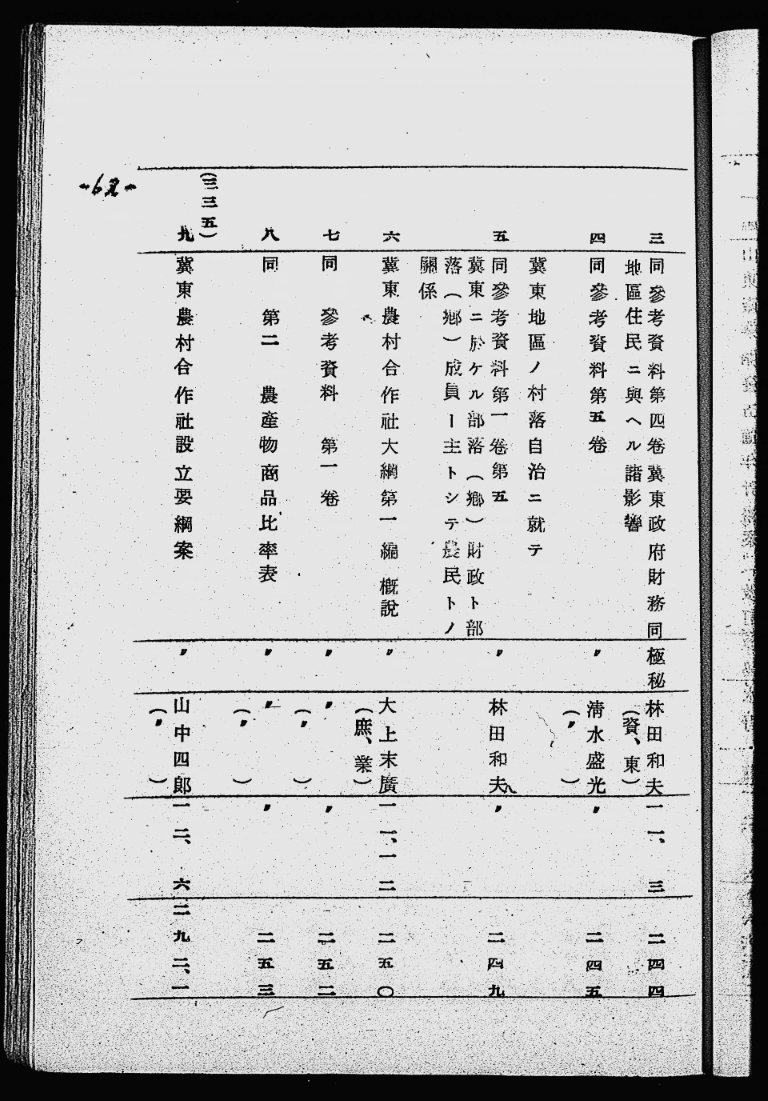 三
同參考資料第四卷冀東政府財務同
地區住民ニ與ヘル諸影響
極秘
林田和夫
(資、東)
一一、三
二四四
四
同參考資料第五卷
冀東地區ノ村落自治ニ就テ
〃
清水盛光
(〃)
〃
二四五
五
同參考資料第一卷第五
冀東ニ於ケル部落(鄕)財政ト部
落(鄕)成員ー主トシテ農民トノ
關係
〃
林田和夫
〃
二四九
六
冀東農村合作社大綱第一編 概說
〃
大上末廣
(庶、業)
一一、一二
二五〇
七
同 參考資料 第一卷
〃
〃
(〃)
〃
二五二
八
同 第二 農產物商品比率表
〃
〃
(〃)
〃
二五三
九
冀東農村合作社設立要綱案
〃
山中四郎
(〃)
一二、六
二九二、一
(三三五)
-62-